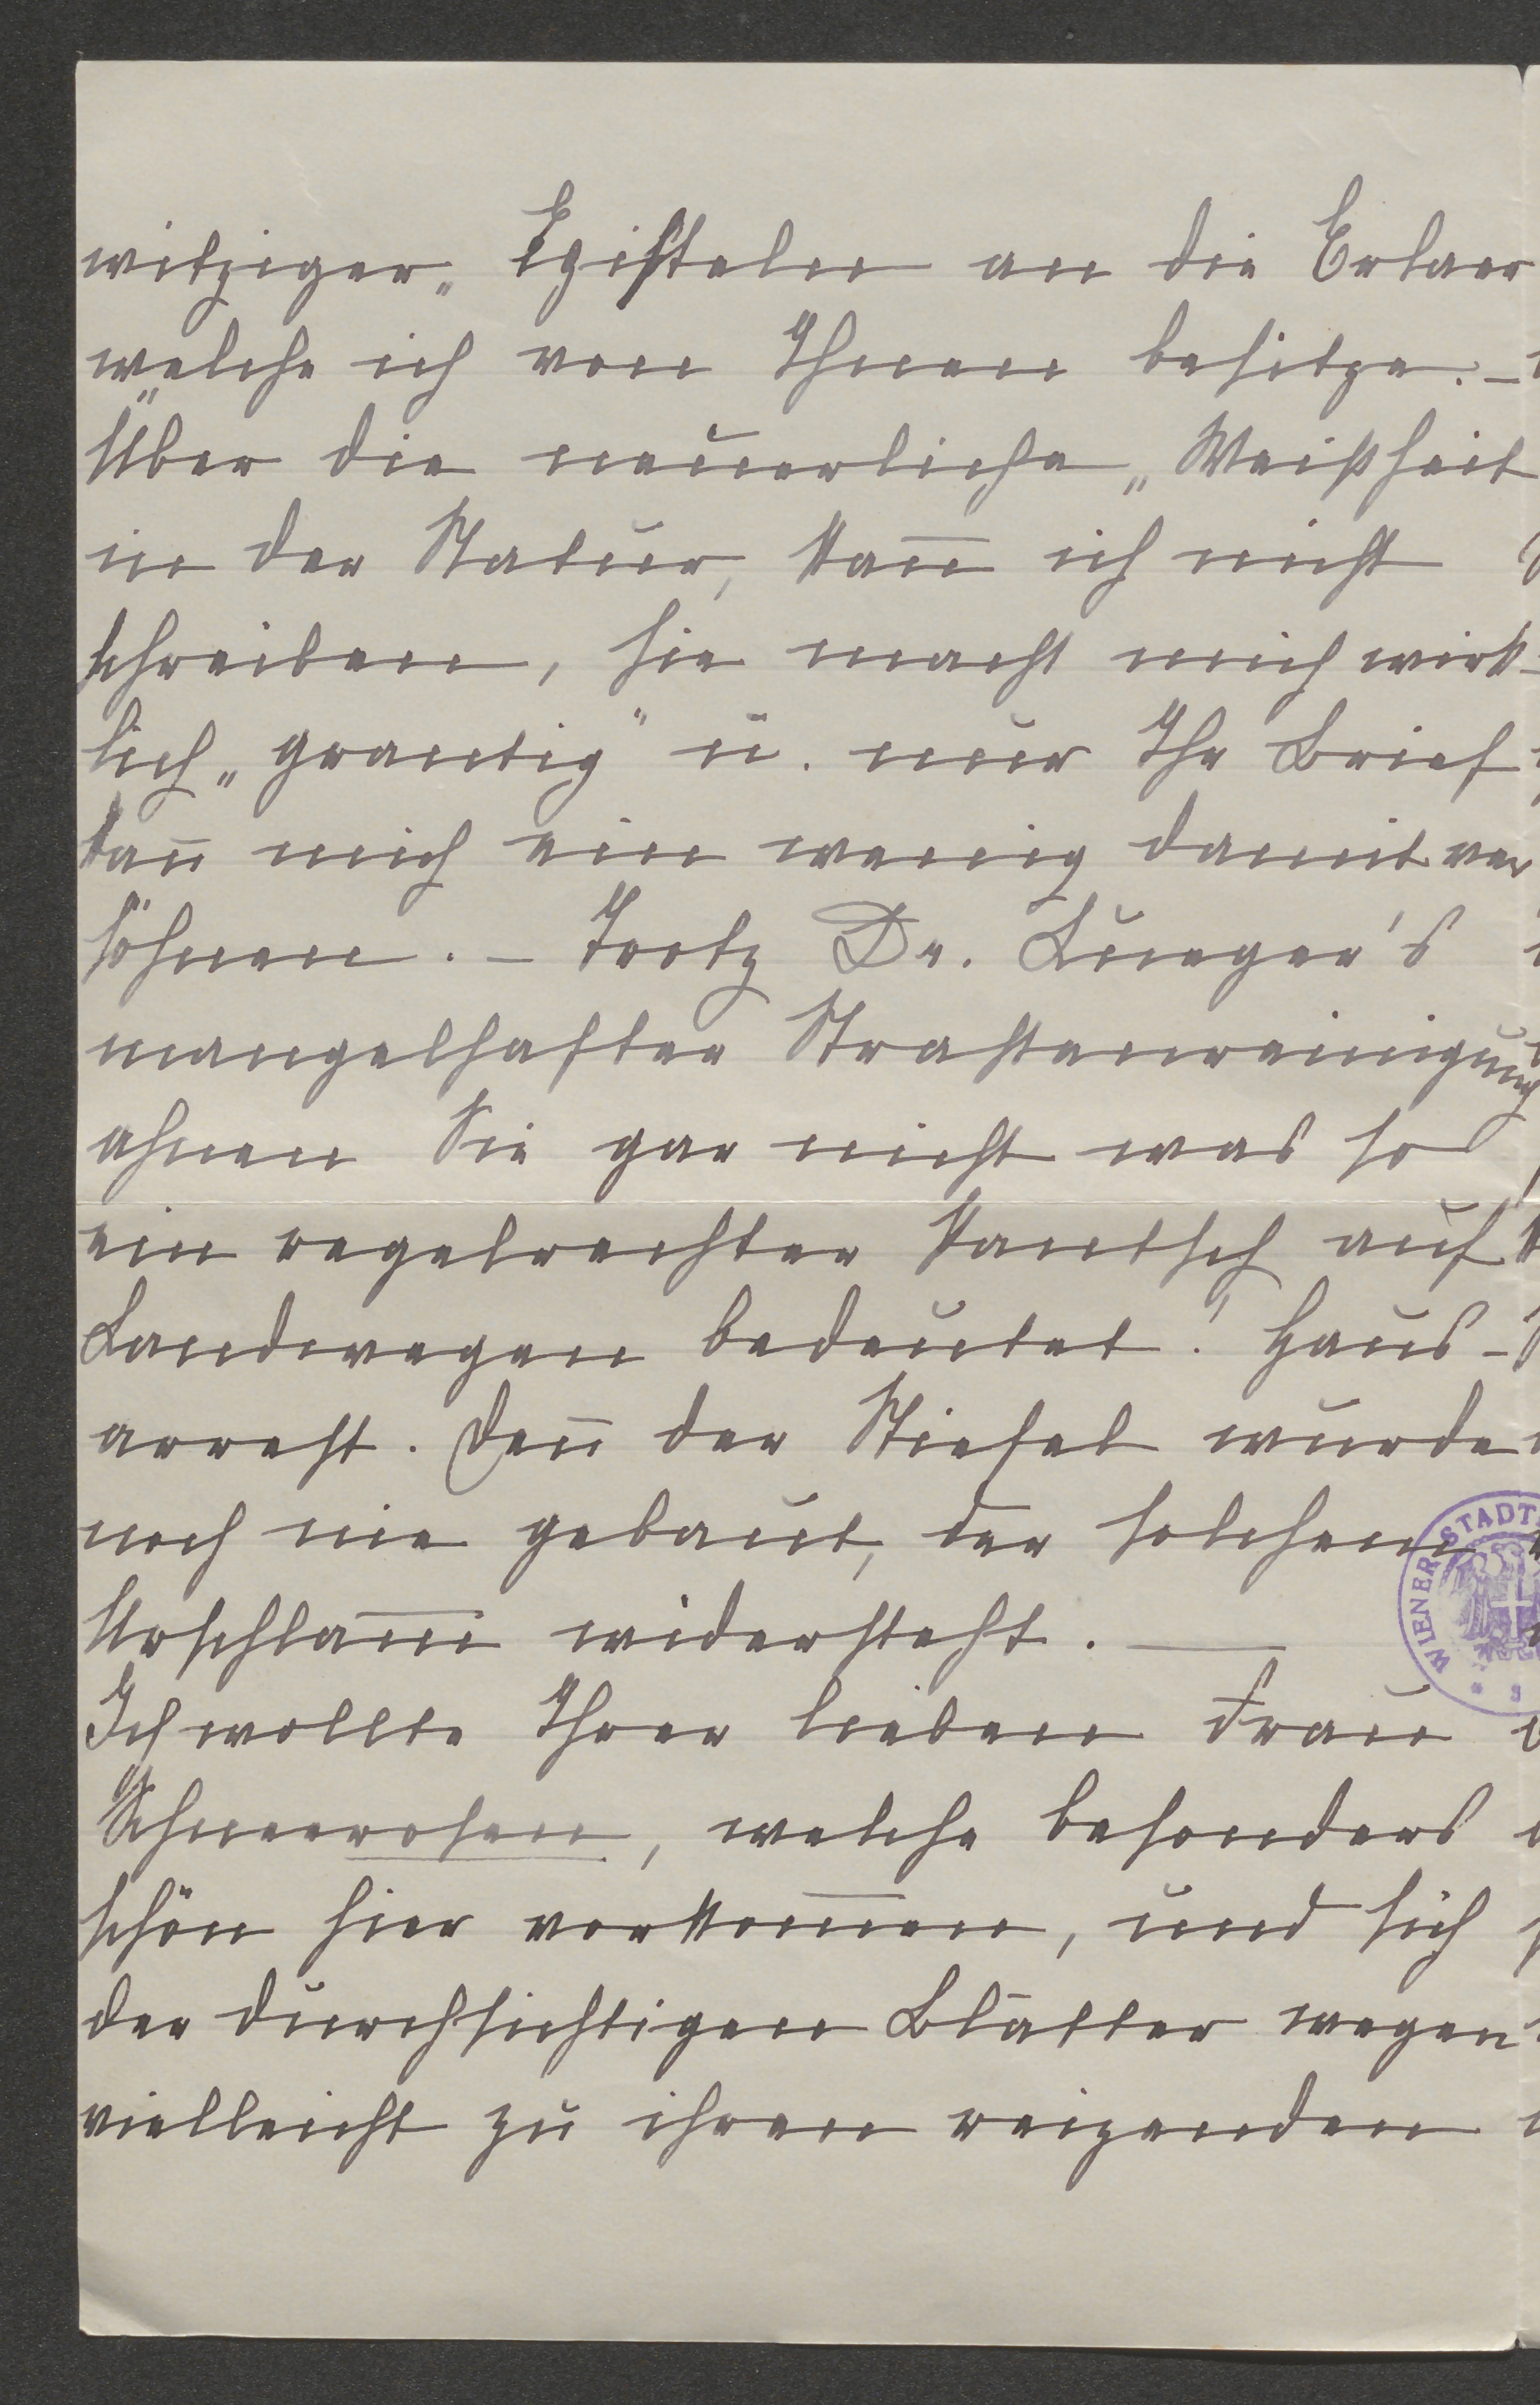 witziger„ Episteln an die Erlaer
welche ich von Ihnen besitze. –
Über die neuerliche „Weißheit
in der Natur, kan̄ ich nicht
schreiben, sie macht mich wirk-
lich „grantig" u. nur Ihr Brief
kan̄ mich ein wenig damit ver
söhnen. – Trotz Dr. Lueger's
mangelhafter Straßenreinigung
ahnen Sie gar nicht was so
ein regelrechter Pantsch auf
Landwegen bedeutet! Haus-
arrest. Den̄ der Stiefel wurde
noch nie gebaut, der solchem
Urschlam̄ widersteht. —
Ich wollte Ihrer lieben Frau
Schneerosen, welche besonders
schön hier vorkom̄en, und sich
der durchsichtigen Blätter wegen
vielleicht zu ihren reizenden
WIENER STADT